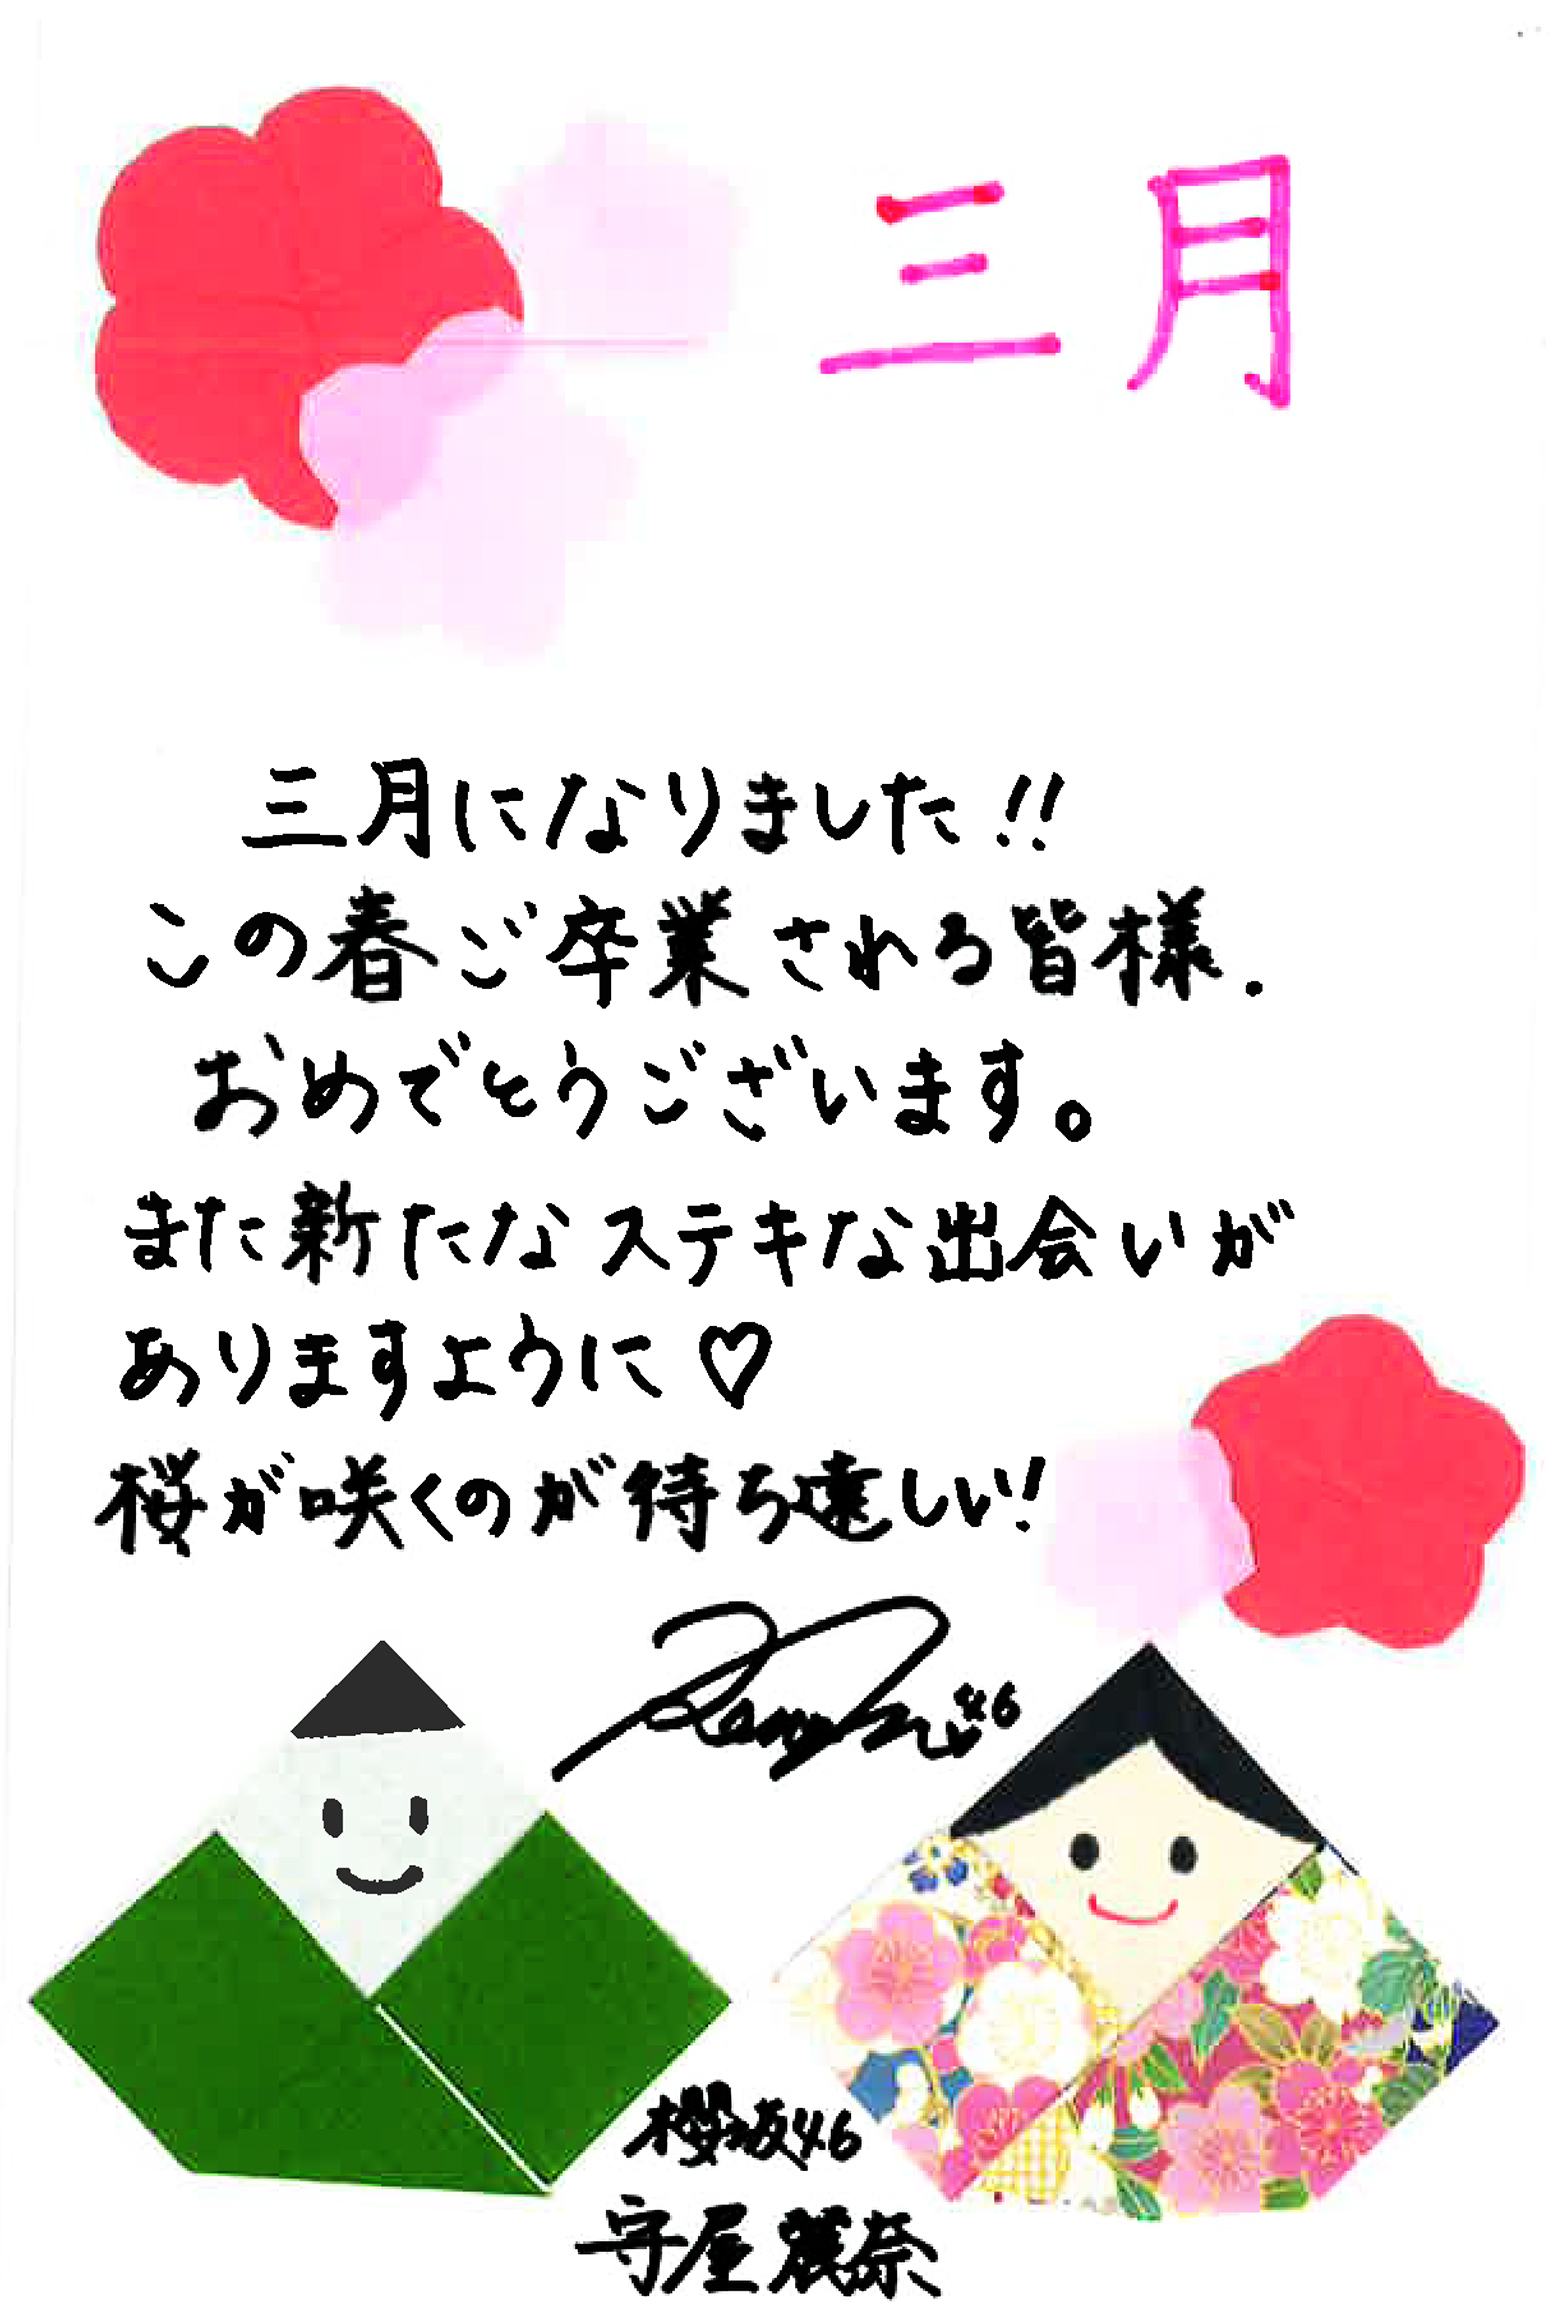 三月
三月になりました!!
この春ご卒業される皆様.
おめでとうございます。
また新たなステキな出会いが
ありますように♡
桜が咲くのが待ち遠しい!
46
櫻坂46
守屋麗奈